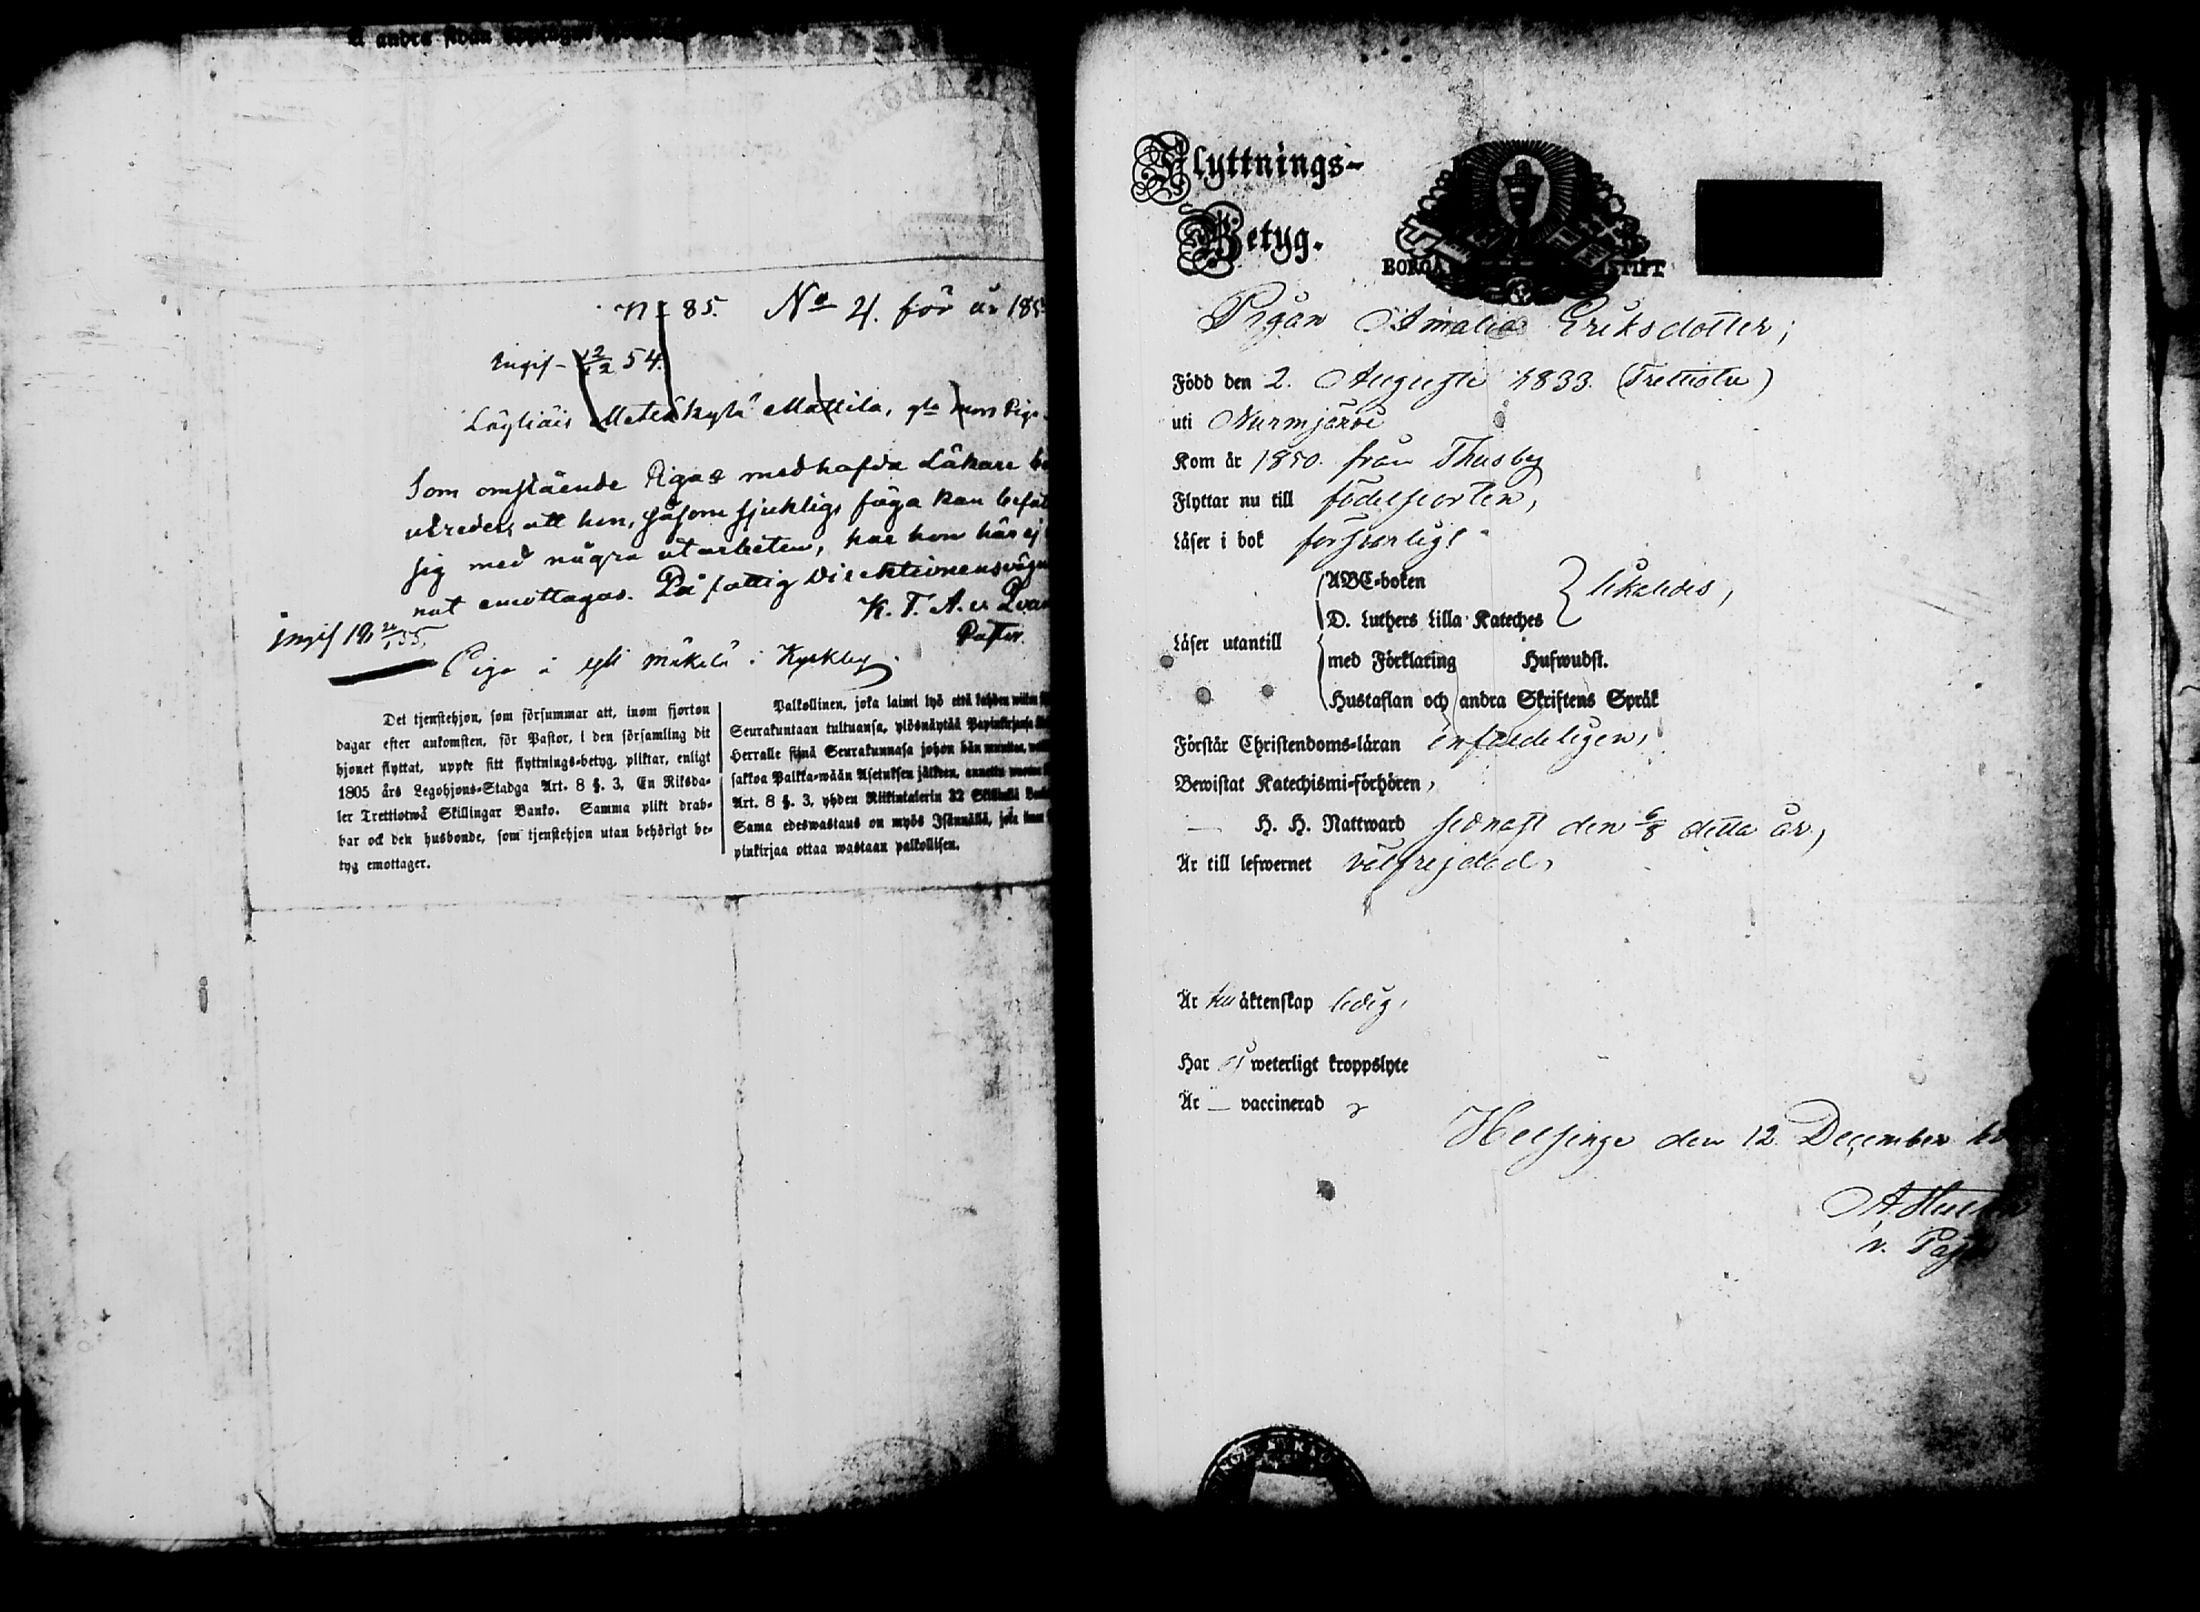 N 85. No 4. för år 185
Ingif - 12/12 54.
Metsäkylä Mattila,
Som omstående Pigas medhafda Läkare
utreder, att hon, såsom sjuklig, föga kan befat
sig med några utarbeten, kan hon här ej
mot emottagas. På fattig Direktionens vägn
K. T. A. v. Qvan
Pastor.
ingif 19
Piga i Mäkelä i Kyrkby.
Det tjenstehjon, som försummar att, inom fjorton
dagar efter ankomsten, för Pastor, i den församling dit
hjonet flyttat, uppte sitt flyttnings-betyg, pliktar, enligt
1805 års Legohjons-Stadga Art. 8 §. 3, En Riksda-
ler Trettiotwå Skillingar Banko. Samma plikt drab-
bar ock den husbonde, som tjenstehjon utan behörigt be-
tyg emottager.
Palkollinen, joka laimi lyö että kahden wiikon
Seurakuntaan tultuansa, ylösnäytää Papinkirjansa
Herralle siinä Seurakunnasa johon hän muuttaa,
sakkoa Palkka-wään Asetuksen jälkeen, annettu wuonna
Art. 8 §. 3, yhden Riikintalerin 32 Skillinkiä Banko
Sama edeswastaus on myös Isännällä, joka ilman
pinkirjaa ottaa wastaan palkollisen.
Flyttnings-
Betyg.
BORGÅ STIFT
Pigan Amalia Eriksdotter;
Född den 2. Augusti 1833. (Trettiotre)
uti Nurmijärvi
Kom år 1850. från Thusby
Flyttar nu till födelseorten,
Läser i bok försvarligt
Läser utantill
ABC-boken
D. Luthers Lilla Kateches
likaledes,
med Förklaring Hufwudst.
Hustaflan och andra Skriftens Språk
Förstår Christendoms-läran enfaldeligen,
Bewistat Katechismi-förhören,
— H. H. Nattward sednast den 6/8 detta år,
Är till lefwernet välfrejdad,
Är till äktenskap ledig,
Har ej weterligt kroppslyte
Är — vaccinerad
Helsinge den 12. December
v. Past